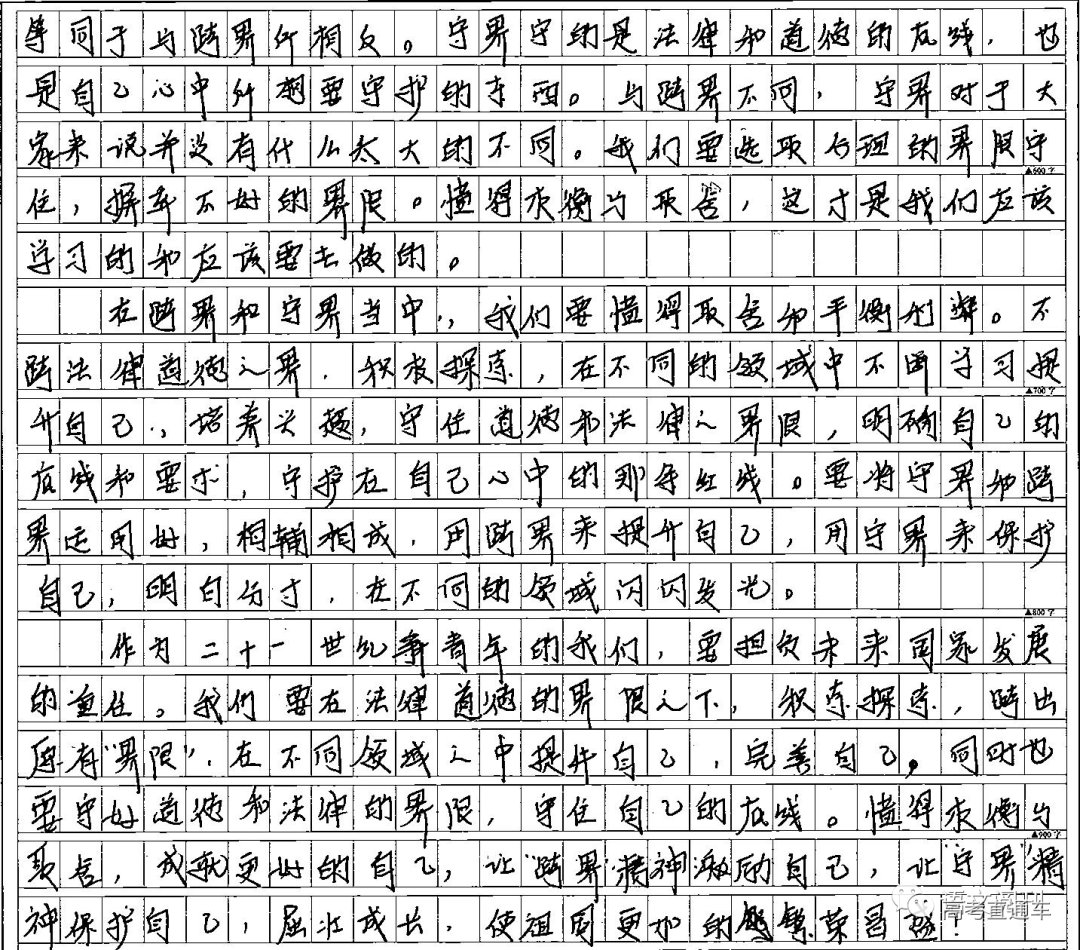 等同于与跨界所相反。守界守的是法律和道德的底线，也
是自己心中所想要守护的东西。与跨界不同，守界对于大
家来说并没有什么太大的不同。我们要选取合理的界限守
▲600字
住，摒弃不好的界限。懂得衡与取舍，这才是我们应该
学习的和应该要去做的。
在跨界和守界当中，我们要懂得取舍和平衡利弊。不
跨法律道德之界，积极探索，在不同的领域中不断学习提
▲700字
升自己，培养兴趣，守住道德和法律之界限，明确自己的
底线和要求，守护在自己心中的那条红线。要将守界和跨
界运用好，相辅相成，用跨界来提升自己，用守界来保护
自己，明白分寸，在不同的领域闪闪发光。
▲800字
作为二十一世纪青年的我们，要担负未来国家发展
的重任。我们要在法律道德的界限之下，积探索，跨出
原有“界限”，在不同领域之中提升自己，完善自己，同时也
要守好道德和法律的界限，守住自己的底线。懂得衡与
▲900字
取舍，成就更好的自己，让“跨界”精神激励自己，让“守界”精
神保护自己，茁壮成长，使祖国更加的繁荣昌盛！
高考直通车